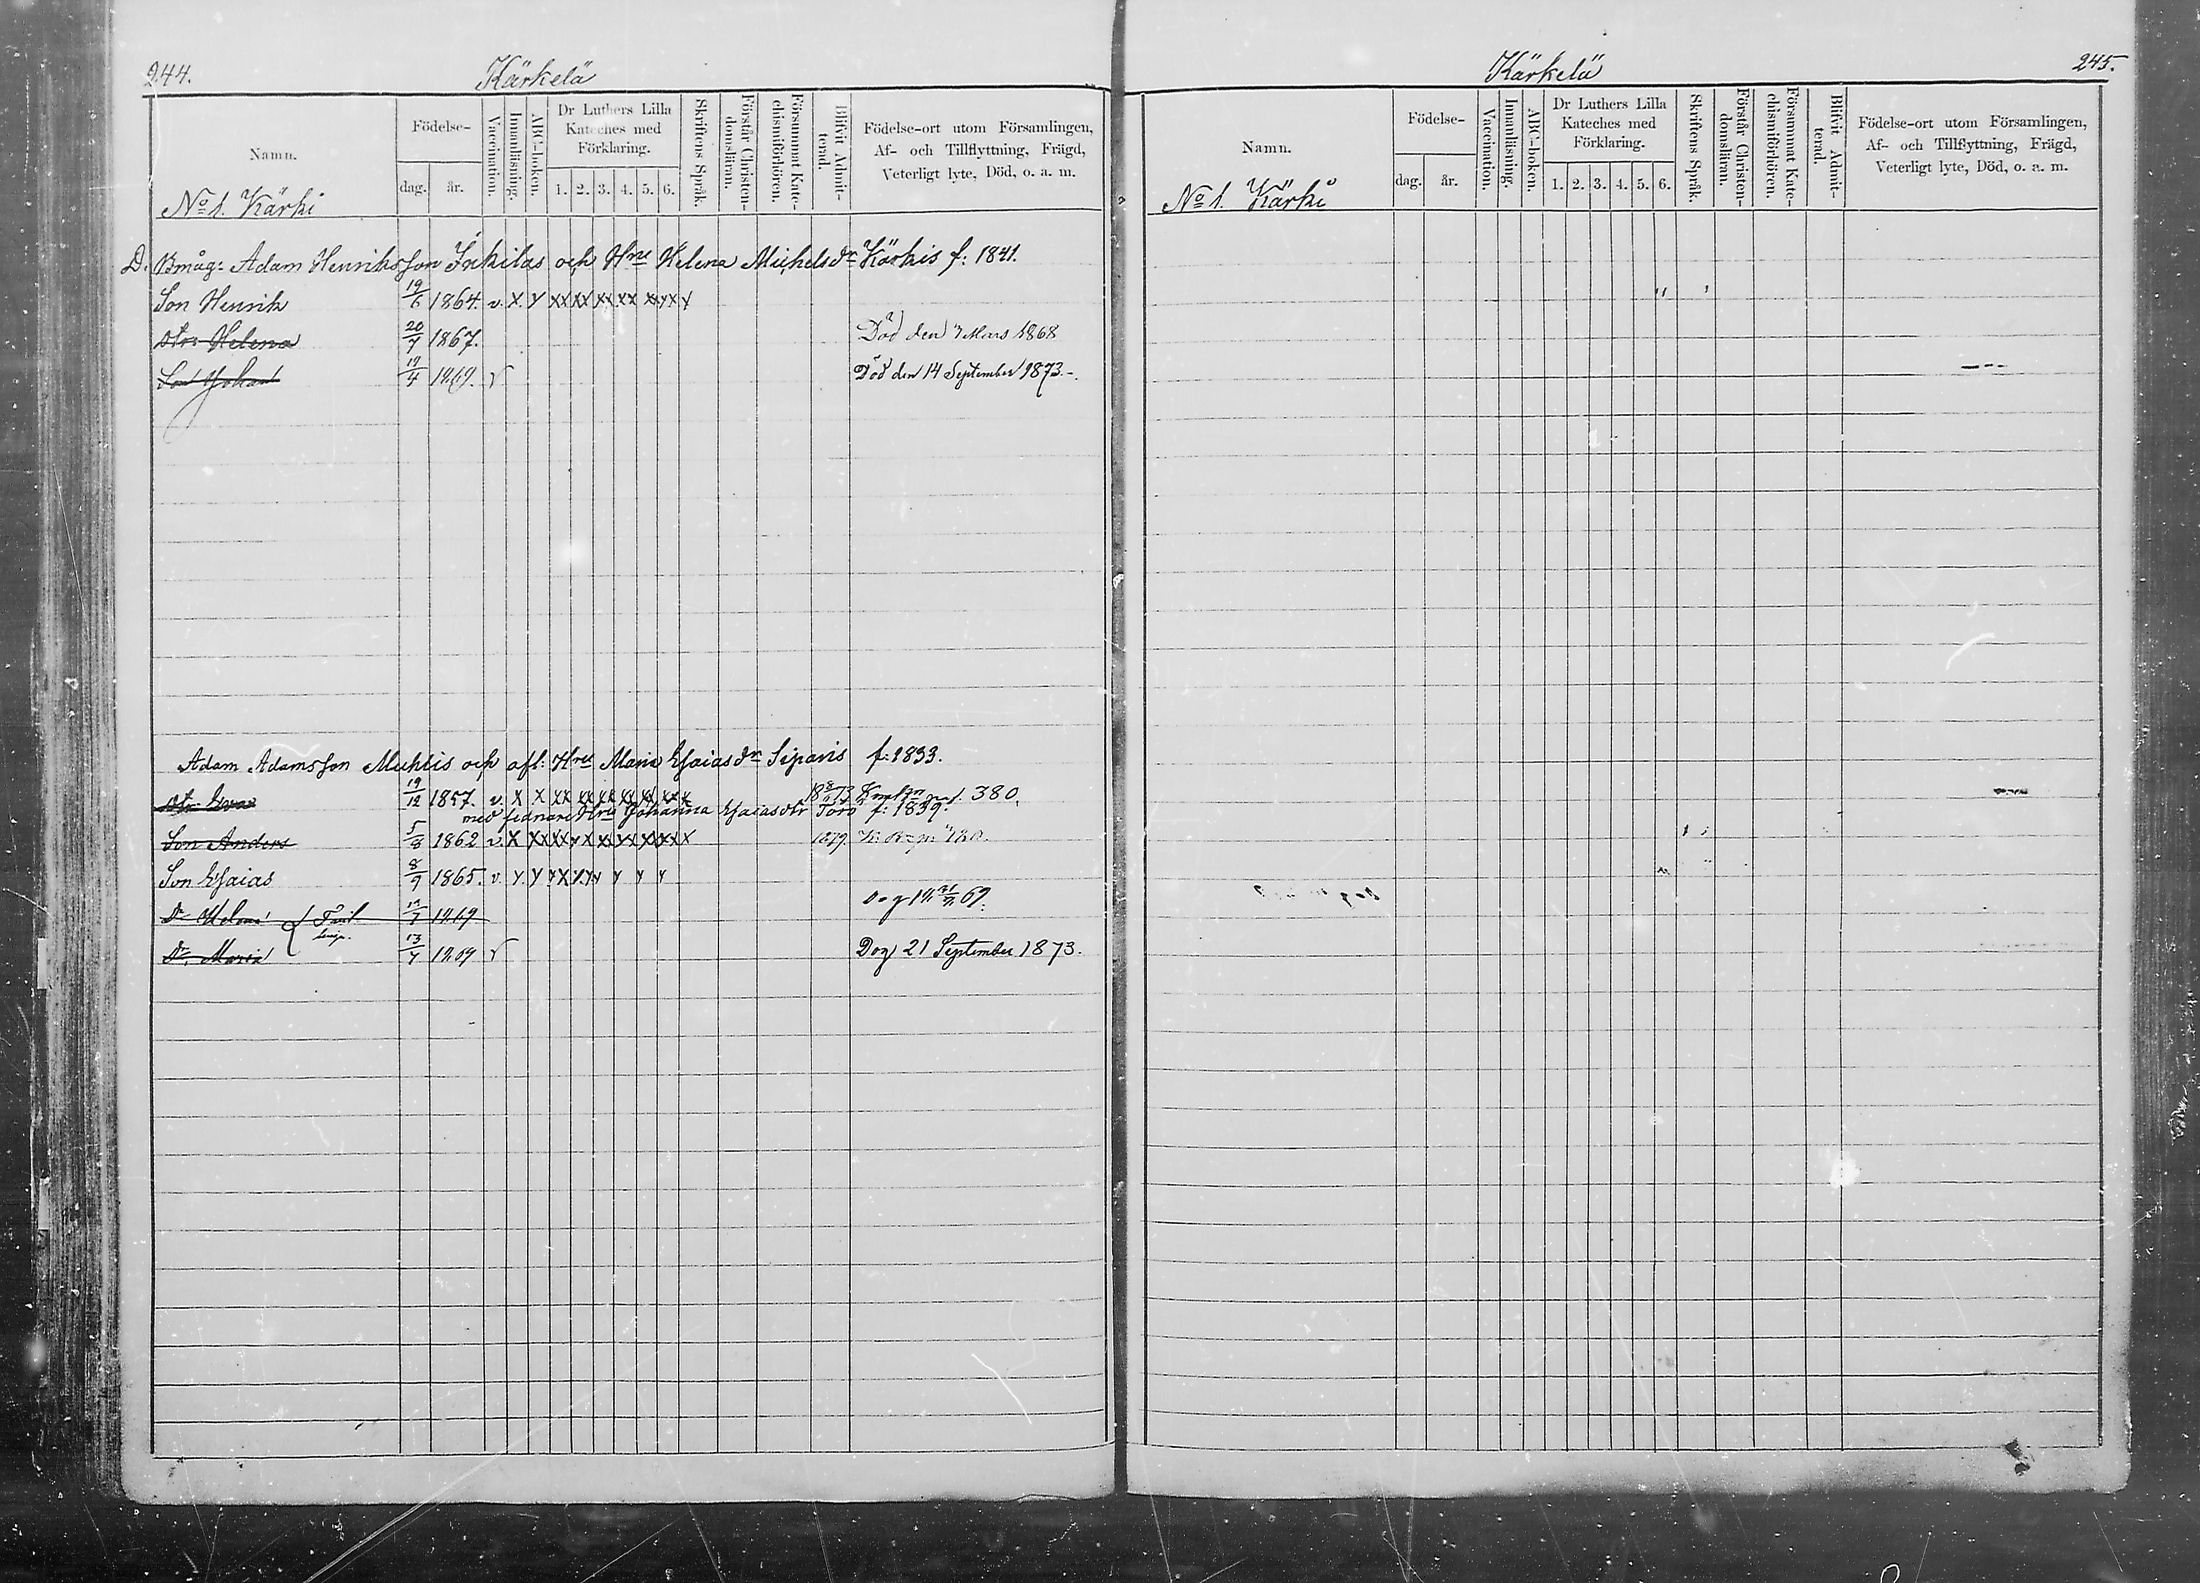 244. Kärkelä
Namn. Födelse- dag. år. Vaccination. Innanläsning. ABC-boken. Dr Luthers Lilla Kateches med Förklaring. 1. 2. 3. 4. 5. 6. Skriftens Språk. Förstår Christen-domsläran. Försummat Kate-chismiförhören. Blifvit Admit-terad. Födelse-ort utom Församlingen, Af- och Tillflyttning, Frägd, Veterligt lyte, Död, o. a. m.
No 1. Kärki
D. Bmåg: Adam Henriksson Inkilas och Hru Helena Michelsdr Kärkis f: 1841.
Son Henrik 19/6 1864. v. X
dtr: Helena 1867. Död den Mars 1868
Son Johan 19/4 1869. v Död den 14 September 1873.
Adam Adamsson och afl: Hru Maria Esaiasdr f: 1833.
dtr 19/12 1857. v. X X 380.
med sednare Hru Johanna Esaiasdtr Toro f: 1839.
Son Anders 5/8 1862 v. X 1879.
Son Esaias 8/9 1865. v.
Dr 1869 69.
Dr. Maria 13/7 1869 v Dog 21 September 1873.
Kärkelä 245.
Namn. Födelse- dag. år. Vaccination. Innanläsning. ABC-boken. Dr Luthers Lilla Kateches med Förklaring. 1. 2. 3. 4. 5. 6. Skriftens Språk. Förstår Christen-domsläran. Försummat Kate-chismiförhören. Blifvit Admit-terad. Födelse-ort utom Församlingen, Af- och Tillflyttning, Frägd, Veterligt lyte, Död, o. a. m.
No 1. Kärki